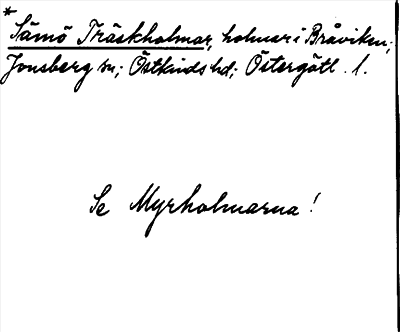 *
Sämö Träskholmar, holmar i Bråviken;
Jonsberg sn; Östkinds hd; Östergötl. l.
Se Myrholmarna!